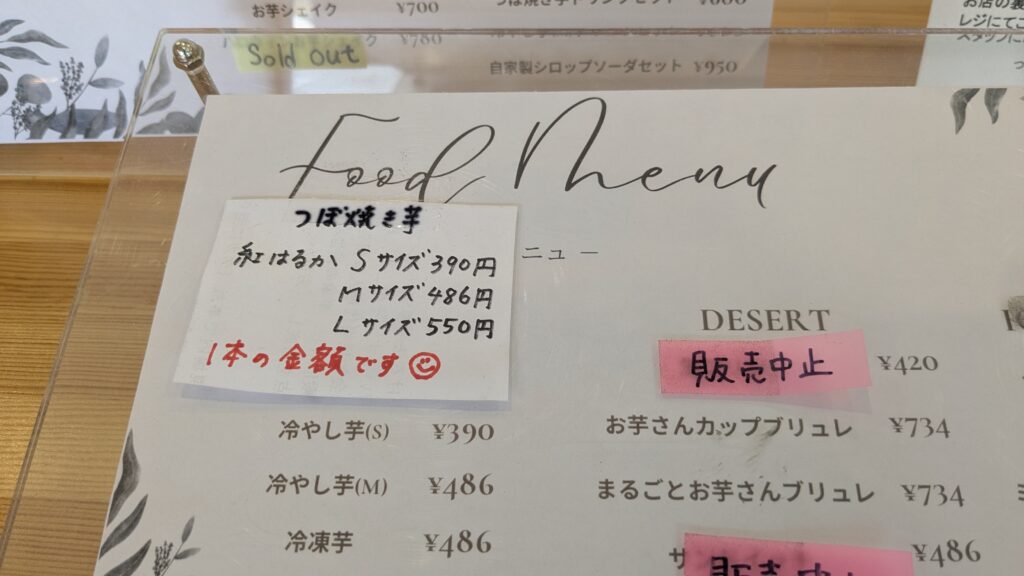 お芋シェイク ¥700
¥780
Sold out
自家製シロップソーダセット ¥950
Food Menu
つぼ焼き芋
紅はるか Sサイズ390円
Mサイズ486円
Lサイズ550円
1本の金額です
ニュー
冷やし芋(S) ¥390
冷やし芋(M) ¥486
冷凍芋 ¥486
DESERT
販売中止 ¥420
お芋さんカップブリュレ ¥734
まるごとお芋さんブリュレ ¥734
販売中止 ¥486